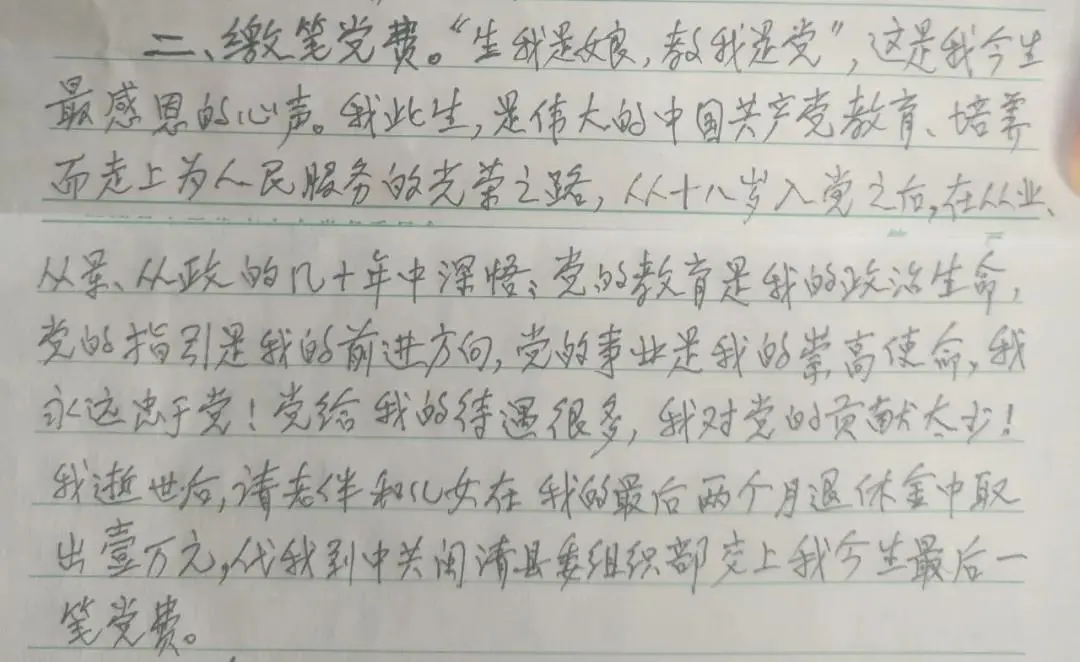 二、缴笔党费。“生我是娘,教我是党”,这是我今生
最感恩的心声。我此生,是伟大的中国共产党教育、培养
而走上为人民服务的光荣之路,从十八岁入党之后,在从业、
从景、从政的几十年中深悟:党的教育是我的政治生命,
党的指引是我的前进方向,党的事业是我的崇高使命,我
永远忠于党!党给我的待遇很多,我对党的贡献太少!
我逝世后,请老伴和儿女在我的最后两个月退休金中取
出壹万元,代我到中共闽清县委组织部交上我今生最后一
笔党费。